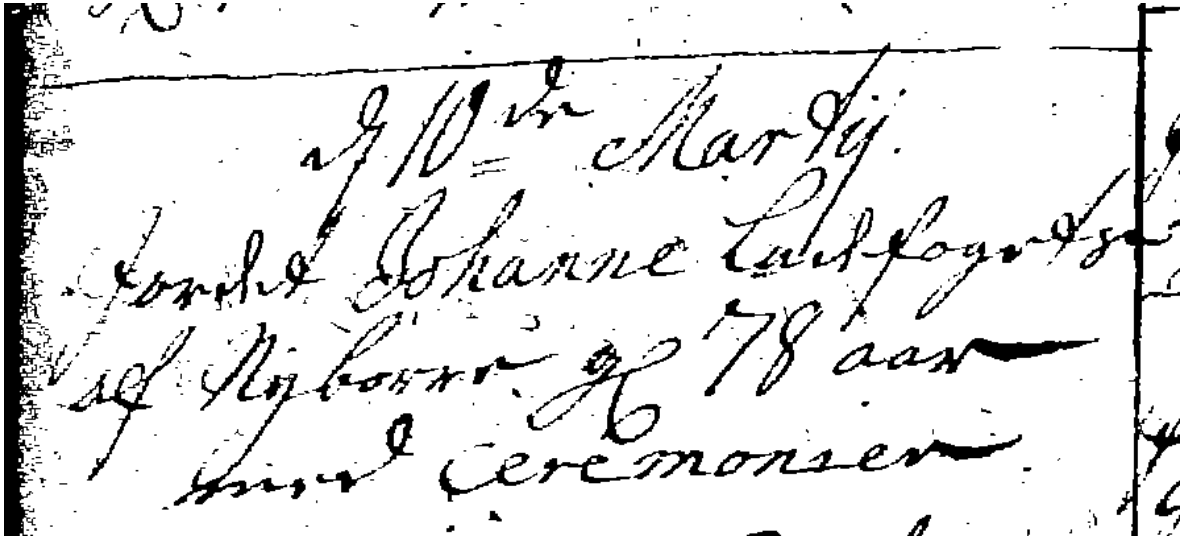 d 10de Martij.
Jordet Johanne Ladefogets
af Nyborre gl 78 aar
med Ceremonier